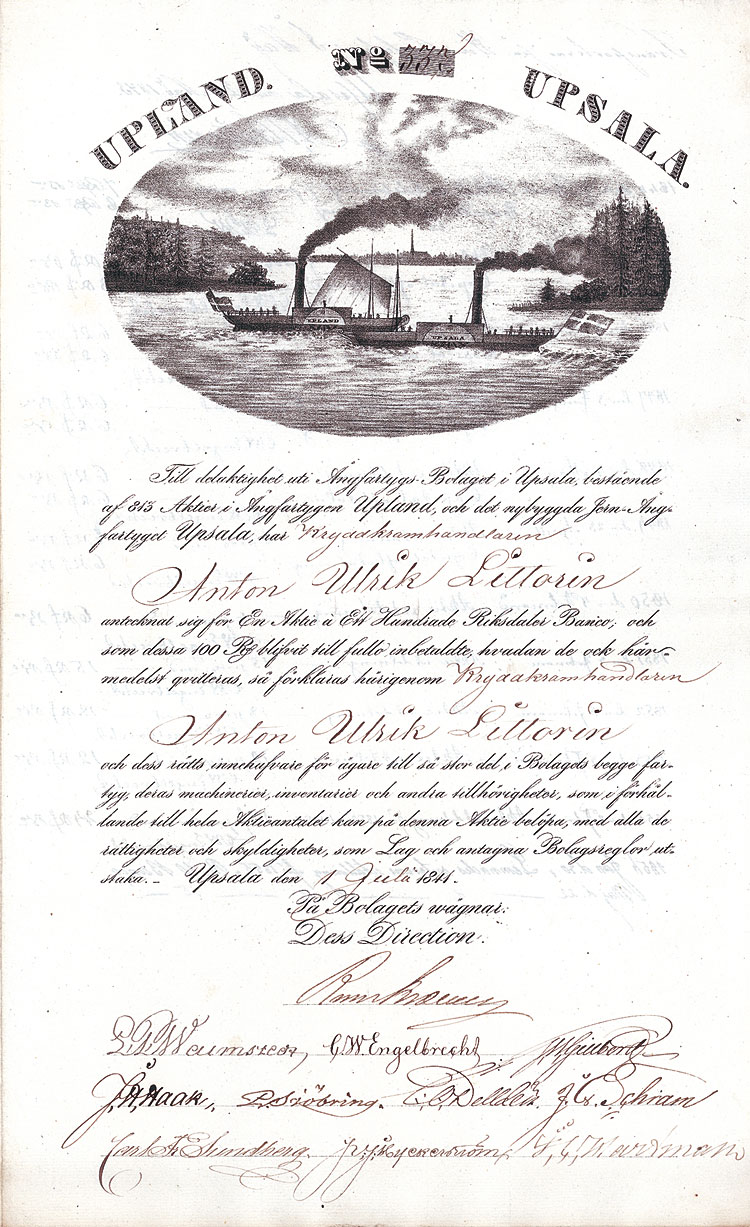 UPLAND. No UPSALA.
UPLAND
UPSALA
Till delaktighet uti Ångfartygs-Bolaget i Upsala, bestående
af 815 Aktier i Ångfartygen Upland, och det nybyggda Jern-Ång-
fartyget Upsala, har Kryddkramhandlaren
Anton Ulrik Littorin
antecknat sig för En Aktie à Ett Hundrade Riksdaler Banco; och
som dessa 100 blifvit till fullo inbetaldte, hvadan de ock här-
medelst qvitteras, så förklaras härigenom Kryddkramhandlaren
Anton Ulrik Littorin
och dess rätts innehafvare för ägare till så stor del i Bolagets begge far-
tyg, deras machinerier, inventarier och andra tillhörigheter, som i förhål-
lande till hela Aktieantalet kan på denna Aktie belöpa, med alla de
rättigheter och skyldigheter, som Lag och antagna Bolagsreglor ut-
staka. – Upsala den 1 Juli 1841.
På Bolagets wägnar:
Dess Direction.
G.W. Engelbrecht
J.H. Haak, P. Sjöbring. J. G. Schram
Carl Fr. Sundberg.